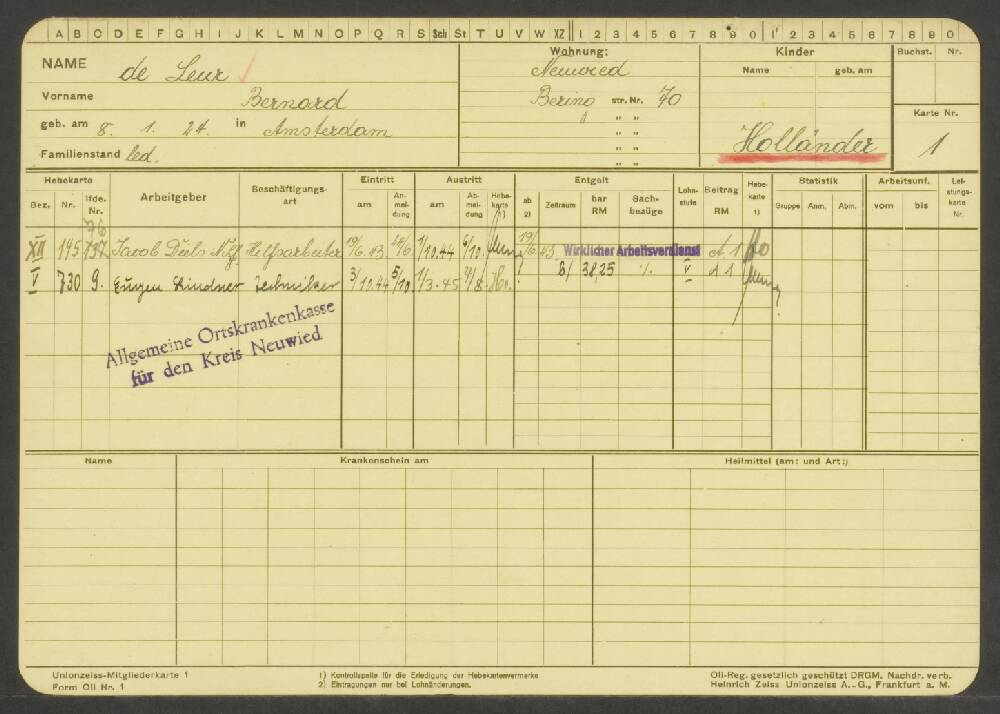 A B C D E F G H I J K L M N O P Q R S Sch St T U V W XZ 1 2 3 4 5 6 7 8 9 0 1 2 3 4 5 6 7 8 9 0
NAME de Leur
Vorname Bernard
geb. am 8. 1. 24. in Amsterdam
Familienstand led.
Wohnung:
Neuwied
Bering str. Nr. 70
" "
" "
" "
" "
Kinder
Name geb. am
Holländer
Buchst. Nr.
Karte Nr.
1
Hebekarte Arbeitgeber Beschäftigungsart Eintritt Austritt Hebekarte 1) ab 2) Entgelt Lohnstufe Beitrag RM Hebekarte 1) Statistik Arbeitsunf. Leistungskarte Nr.
Bez. Nr. lfde. Nr. am Anmeldung am Abmeldung Zeitraum bar RM Sachbezüge Gruppe Anm. Abm. vom bis
76
XII 195 Jacob Diels Hilfsarbeiter 19/6.43 24/6 1/10.44 6/10. 19/6.43 Wirklicher Arbeitsverdienst A 1
V 730 9. Eugen Lindner Techniker 3/10.44 5/10 1/3.45 21/8. 31,25 ./. V A 1
Allgemeine Ortskrankenkasse
für den Kreis Neuwied
Name Krankenschein am Heilmittel (am: und Art:)
Unionzeiss-Mitgliederkarte 1
Form Oli Nr. 1
1) Kontrollspalte für die Erledigung der Hebekartenvermerke
2) Eintragungen nur bei Lohnänderungen.
Oli-Reg. gesetzlich geschützt DRGM. Nachdr. verb.
Heinrich Zeiss Unionzeiss A.-G., Frankfurt a. M.